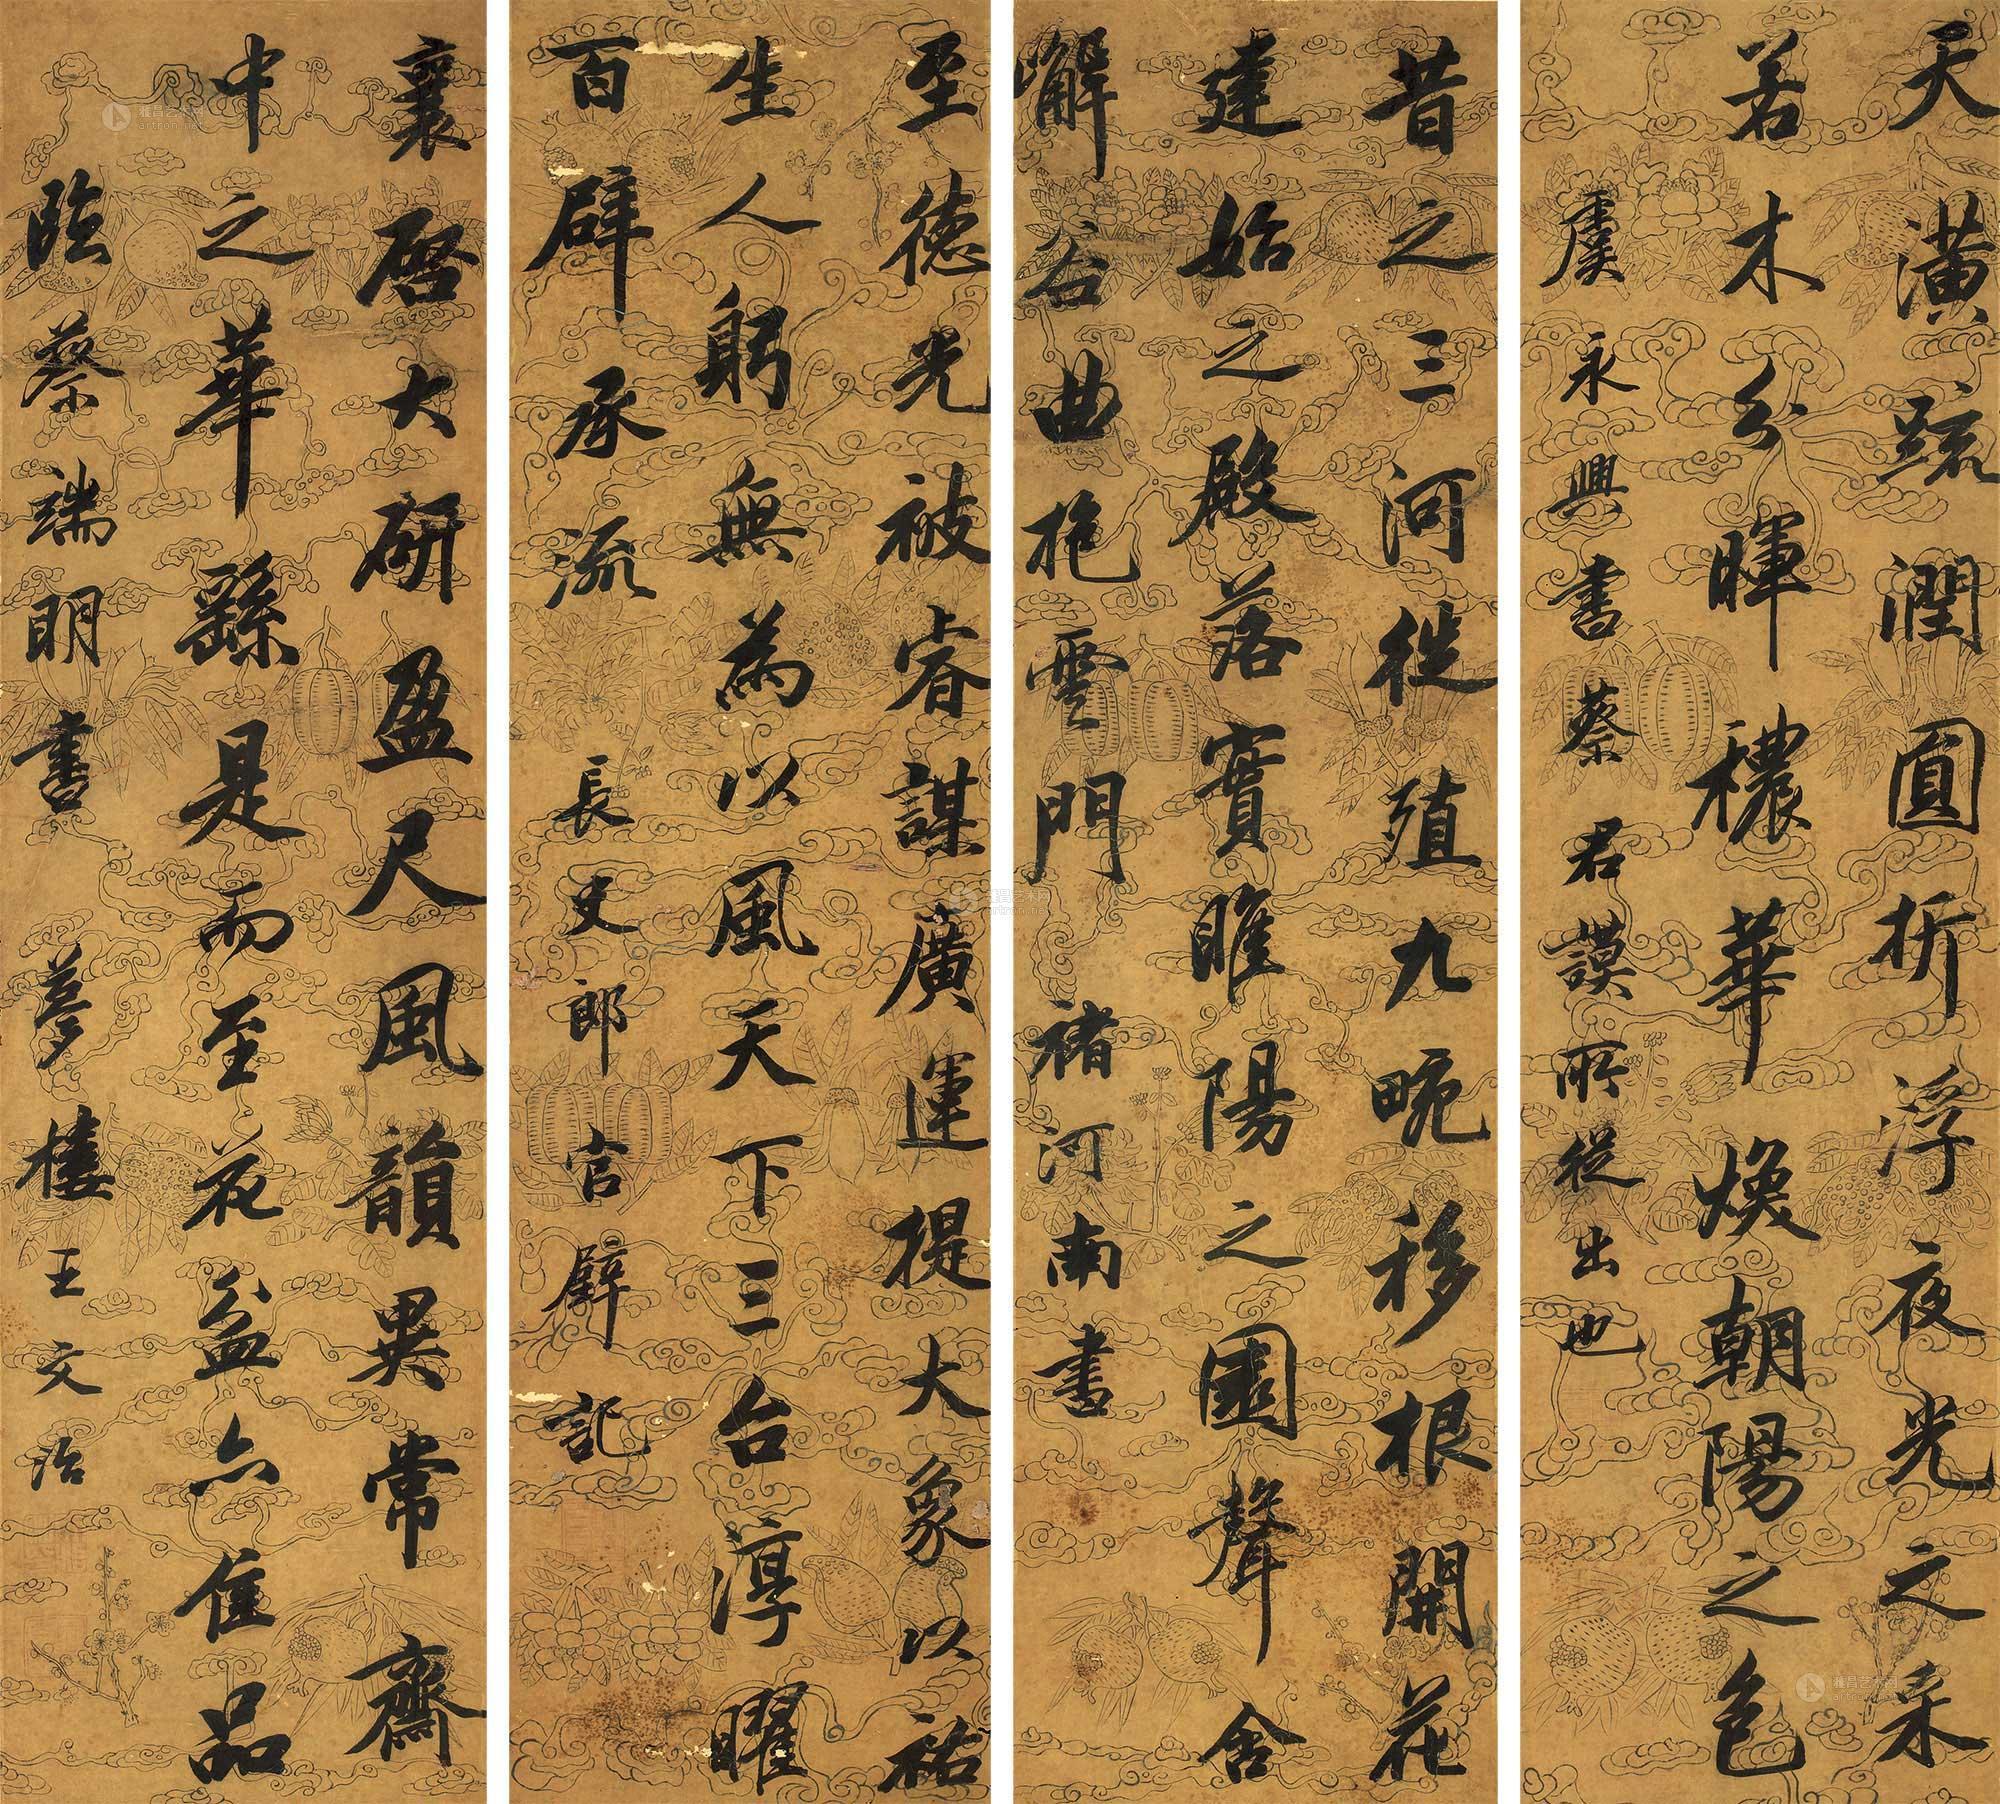 天潢疏潤圓折浮夜光之采
若木分暉穠華煥朝陽之色
虞永興書蔡君謨所從出也
昔之三河徙殖九畹移根開花
建始之殿落實睢陽之園聲舍
嶰谷曲抱雲門 褚河南書
至德光被睿謀廣運提大象以祐
生人躬無為以風天下三台淳曜
百辟承流 長史郎官壁記
襄啓大研盈尺風韻異常齋
中之華繇是而至花盆亦佳品
臨蔡端明書 夢樓王文治
雅昌艺术网
artron.net